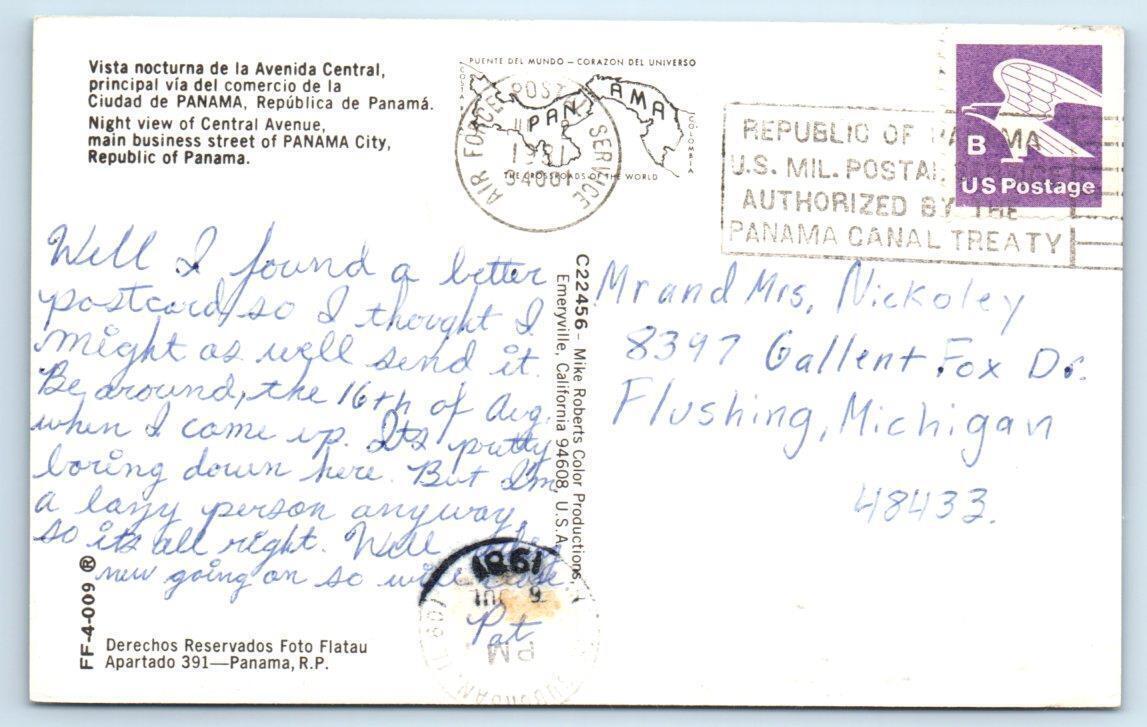 Vista nocturna de la Avenida Central,
principal vía del comercio de la
Ciudad de PANAMA, República de Panamá.
Night view of Central Avenue,
main business street of PANAMA City,
Republic of Panama.
PUENTE DEL MUNDO — CORAZON DEL UNIVERSO
COSTA
PANAMA
COLOMBIA
THE CROSSROADS OF THE WORLD
AIR FORCE POSTAL SERVICE
1981
34001
REPUBLIC OF PANAMA
U.S. MIL. POSTAL
AUTHORIZED BY THE
PANAMA CANAL TREATY
B
US Postage
Well I found a better
postcard so I thought I
might as well send it.
Be around, the 16th of Aug.
when I come up. Its pretty
boring down here. But I'm
a lazy person anyway,
so its all right. Well
new going on so will close
Pat
Mr and Mrs. Nickoley
8397 Gallent Fox Dr.
Flushing, Michigan
48433.
C22456 - Mike Roberts Color Productions,
Emeryville, California 94608, U.S.A.
1981
6 JUL
PM
FF-4-009 ®
Derechos Reservados Foto Flatau
Apartado 391—Panama, R.P.